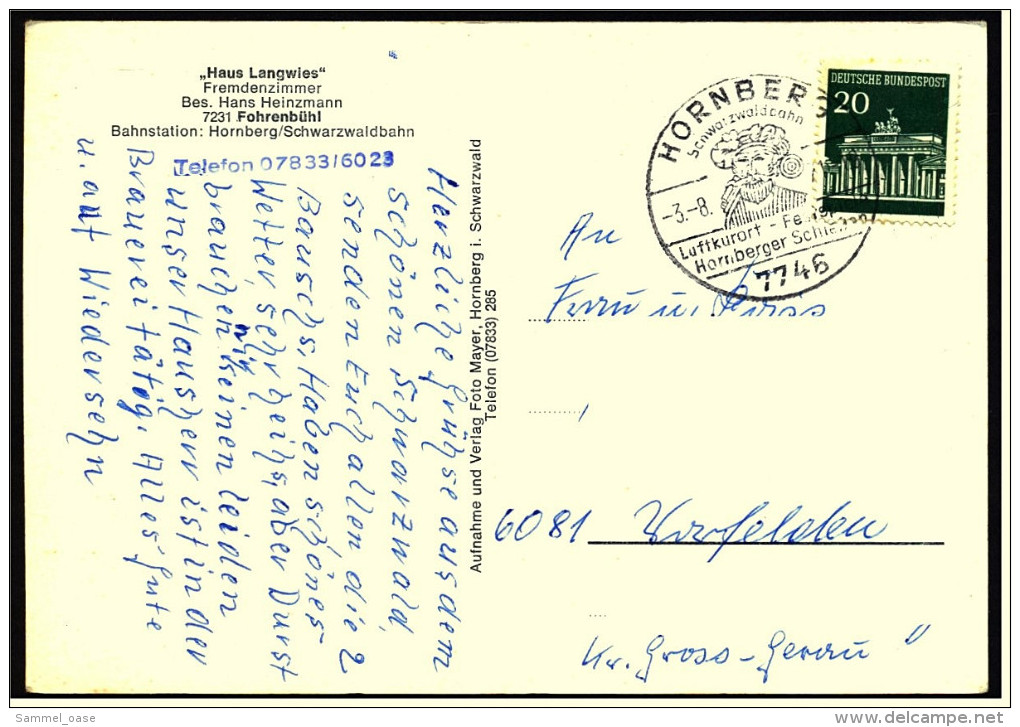 „Haus Langwies“
Fremdenzimmer
Bes. Hans Heinzmann
7231 Fohrenbühl
Bahnstation: Hornberg/Schwarzwaldbahn
Telefon 07833/6023
Herzliche Grühse aus dem
schönen Schwarzwald,
senden Euch allen die 2
Bauschs, Haben schönes
Wetter, sehr heihs, aber Durst
brauchen wir keinen leiden
unser Hausherr ist in der
Brauerei tätig. Alles Gute
u. auf Wiedersehn
Aufnahme und Verlag Foto Mayer, Hornberg i. Schwarzwald
Telefon (07833) 285
HORNBERG
Schwarzwaldbahn
-3.-8.
Luftkurort -
Hornberger
7746
DEUTSCHE BUNDESPOST
20
An
Frau u.
6081 Worfelden
Kr. Gross-Gerau
Sammel_oase
www.delcampe.net